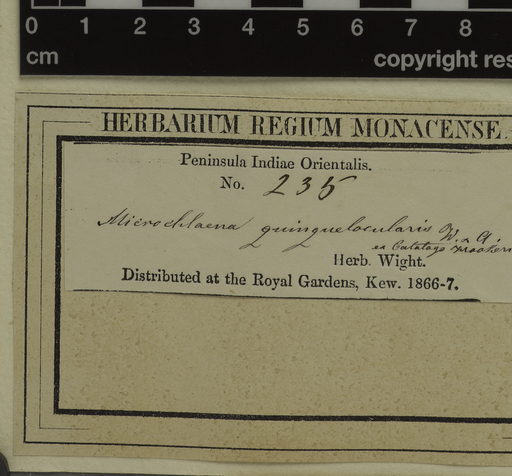 0 1 2 3 4 5 6 7 8
cm copyright res
HERBARIUM REGIUM MONACENSE.
Peninsula Indiae Orientalis.
No. 235
Microchlaena quinquelocularis W. & A.
ex Catalogo
Herb. Wight.
Distributed at the Royal Gardens, Kew. 1866-7.